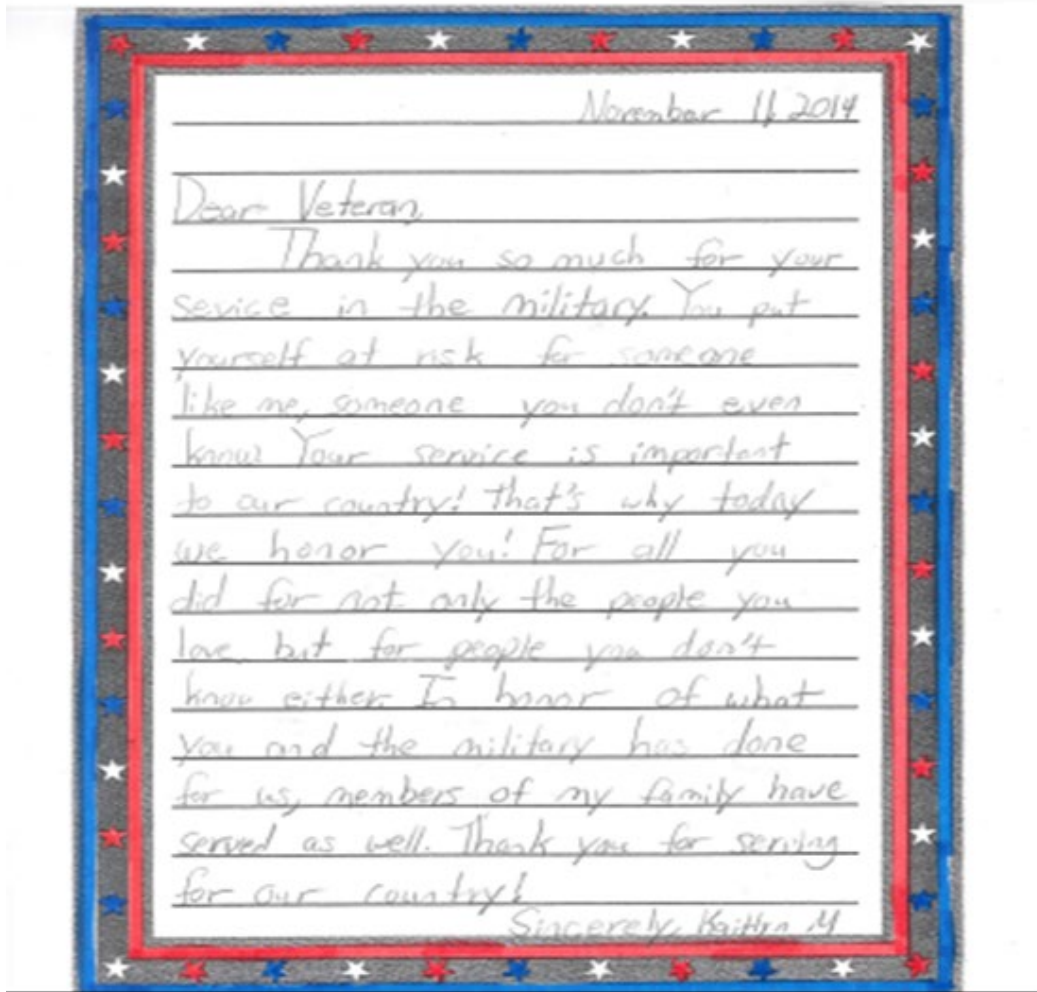 November 11, 2014
Dear Veteran,
Thank you so much for your
sevice in the military. You put
yourself at risk for someone
like me, someone you don't even
know! Your service is important
to our country! That's why today
we honor you! For all you
did for not only the people you
love, but for people you don't
know either. In honor of what
you and the military has done
for us, members of my family have
served as well. Thank you for serving
for our country!
Sincerely, Kaitlyn M